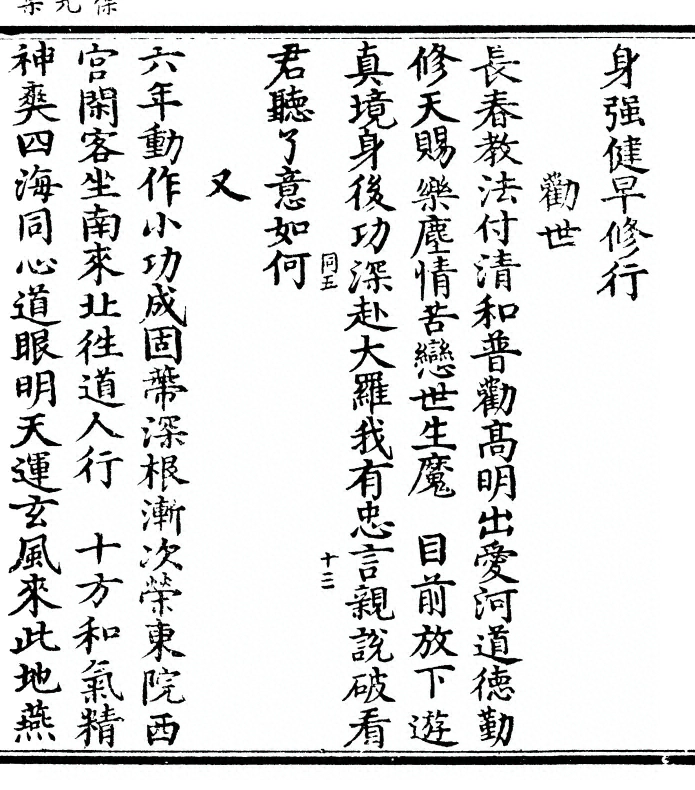 身强健早修行
勸世
長春教法付清和普勸髙明出愛河道德勤
修天賜樂塵情苦戀世生魔　目前放下遊
真境身後功深赴大羅我有忠言親說破看
同五
十二
君聽了意如何
又
六年動作小功成固蔕深根漸次榮東院西
宫閑客坐南來北徃道人行　十方和氣精
神爽四海同心道眼明天運玄風來此地燕